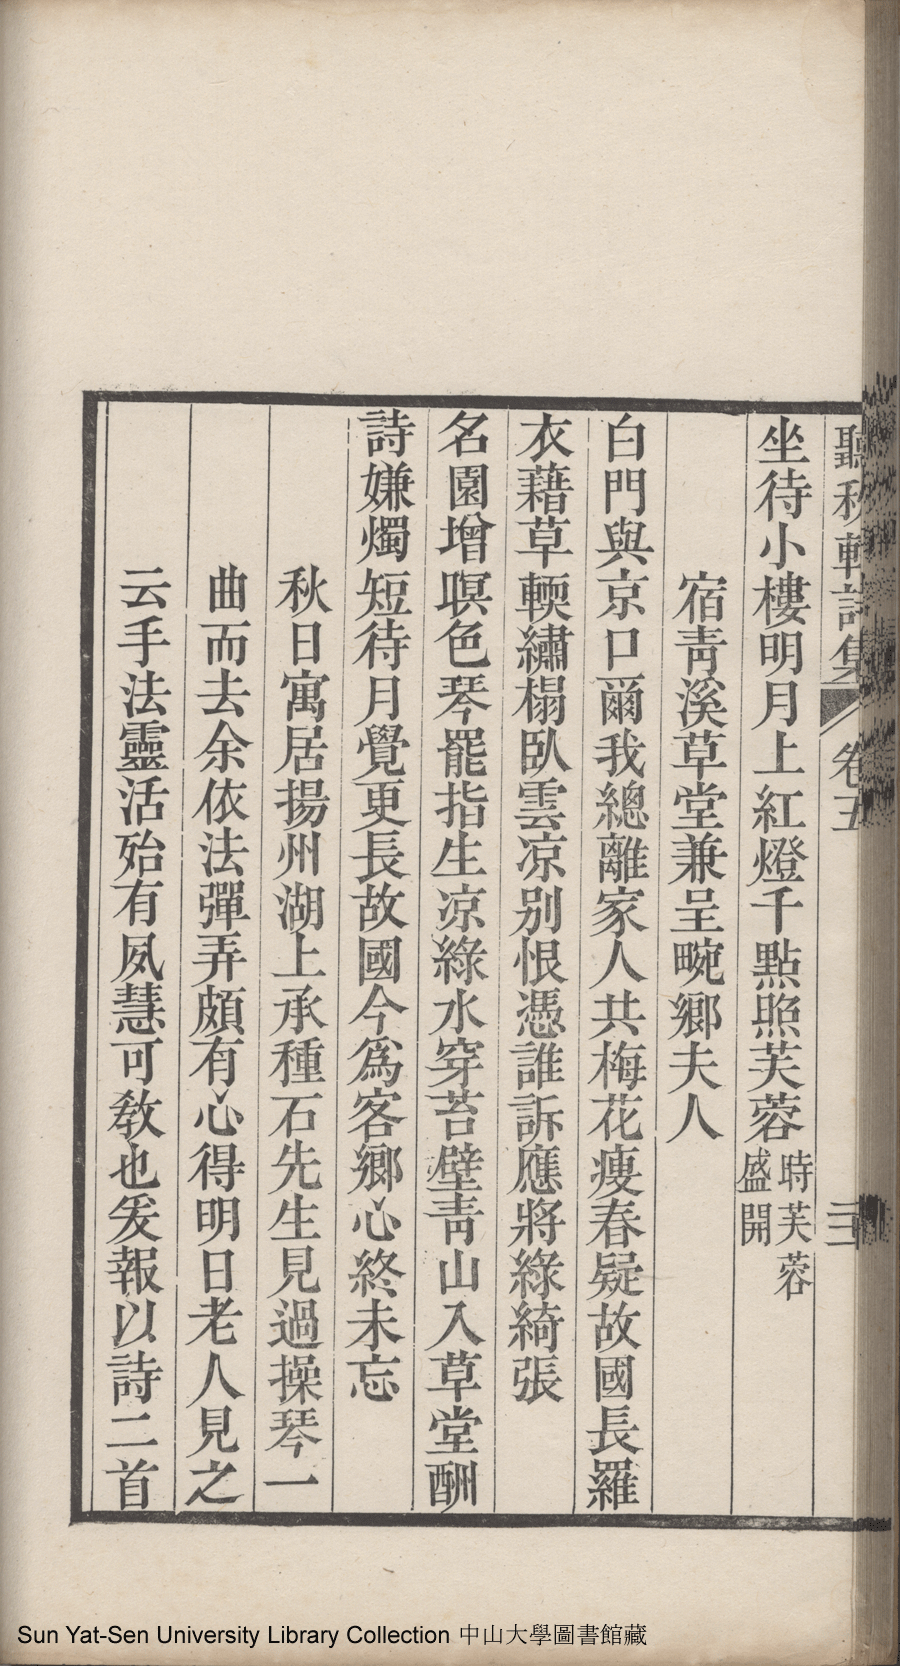 聽秋軒詩集 卷五 三
坐待小樓明月上紅燈千點照芙蓉時芙蓉盛開
宿靑溪草堂兼呈畹鄉夫人
白門與京口爾我總離家人共梅花瘦春疑故國長羅
衣藉草輭繡榻臥雲凉别恨憑誰訴應將綠綺張
名園增暝色琴罷指生凉綠水穿苔壁靑山入草堂酬
詩嫌燭短待月覺更長故國今爲客鄉心終未忘
秋日寓居揚州湖上承種石先生見過操琴一
曲而去余依法彈弄頗有心得明日老人見之
云手法靈活殆有夙慧可敎也爰報以詩二首
Sun Yat-Sen University Library Collection 中山大學圖書館藏